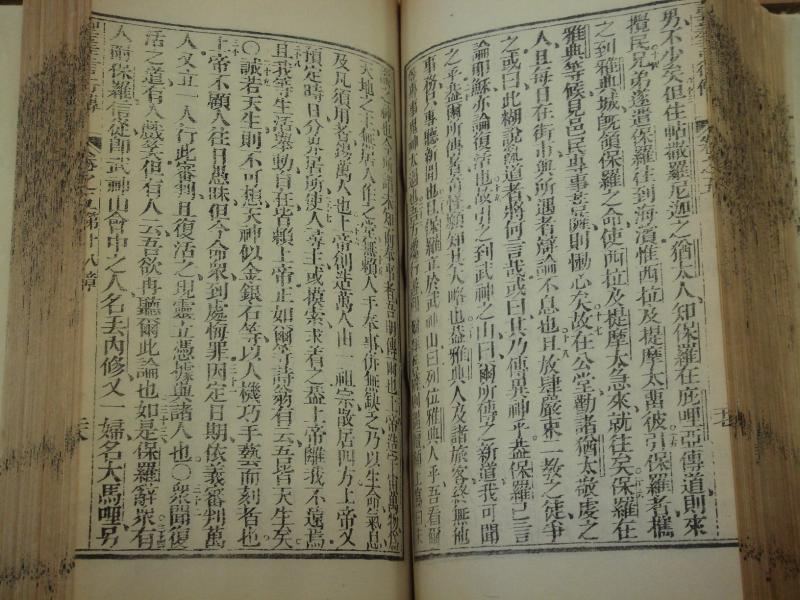 男不少矣但住帖撒羅尼迦之猶太人知保羅在庇哩亞傳道則來
攪民兄弟遂遣保羅往到海濱惟西拉及提摩太畱彼引保羅者攜
之到雅典城既領保羅之命使西拉及提摩太急來就往矣保羅在
雅典等候見邑民專事菩薩則慟心矣故在公堂勸諸猶太敬虔之
人且每日在街市與所遇者辯論不息也且放肆嚴束二教之徒爭
之或曰此糊說亂道者將何言哉或曰其乃傳異神乎蓋保羅已言
論耶穌亦論復活也故引之到武神之山曰爾所傳之新道我可聞
之乎蓋爾所傳甚奇怪願知其大略也蓋雅典人及諸旅客終無他
事務只專聽新聞也且保羅立於武神山曰列位雅典人乎吾看爾
天地之主無居人作之堂無賴人手奉事併無缺之乃以生命氣息
及凡須用者錫萬人也上帝創造萬人由一祖宗散居四方上帝又
預定時日分界居所使人尋主或摸索求着之蓋上帝離我不遠焉
且我等生活舉動自在皆賴上帝正如爾等詩翁有云吾皆天生矣
〇誠若天生則不可想天神似金銀石等以人機巧手藝而刻者也
上帝不顧人往日愚昧但今命衆到處悔罪因定日期依義審判萬
人又立一人行此審判且復活之現靈立憑據與諸人也〇衆聞復
活之道有人戲笑但有人云吾欲再聽爾此論也如是保羅辭衆有
人爾保羅信從即武神山會中之人名丟內修又一婦名大馬哩另